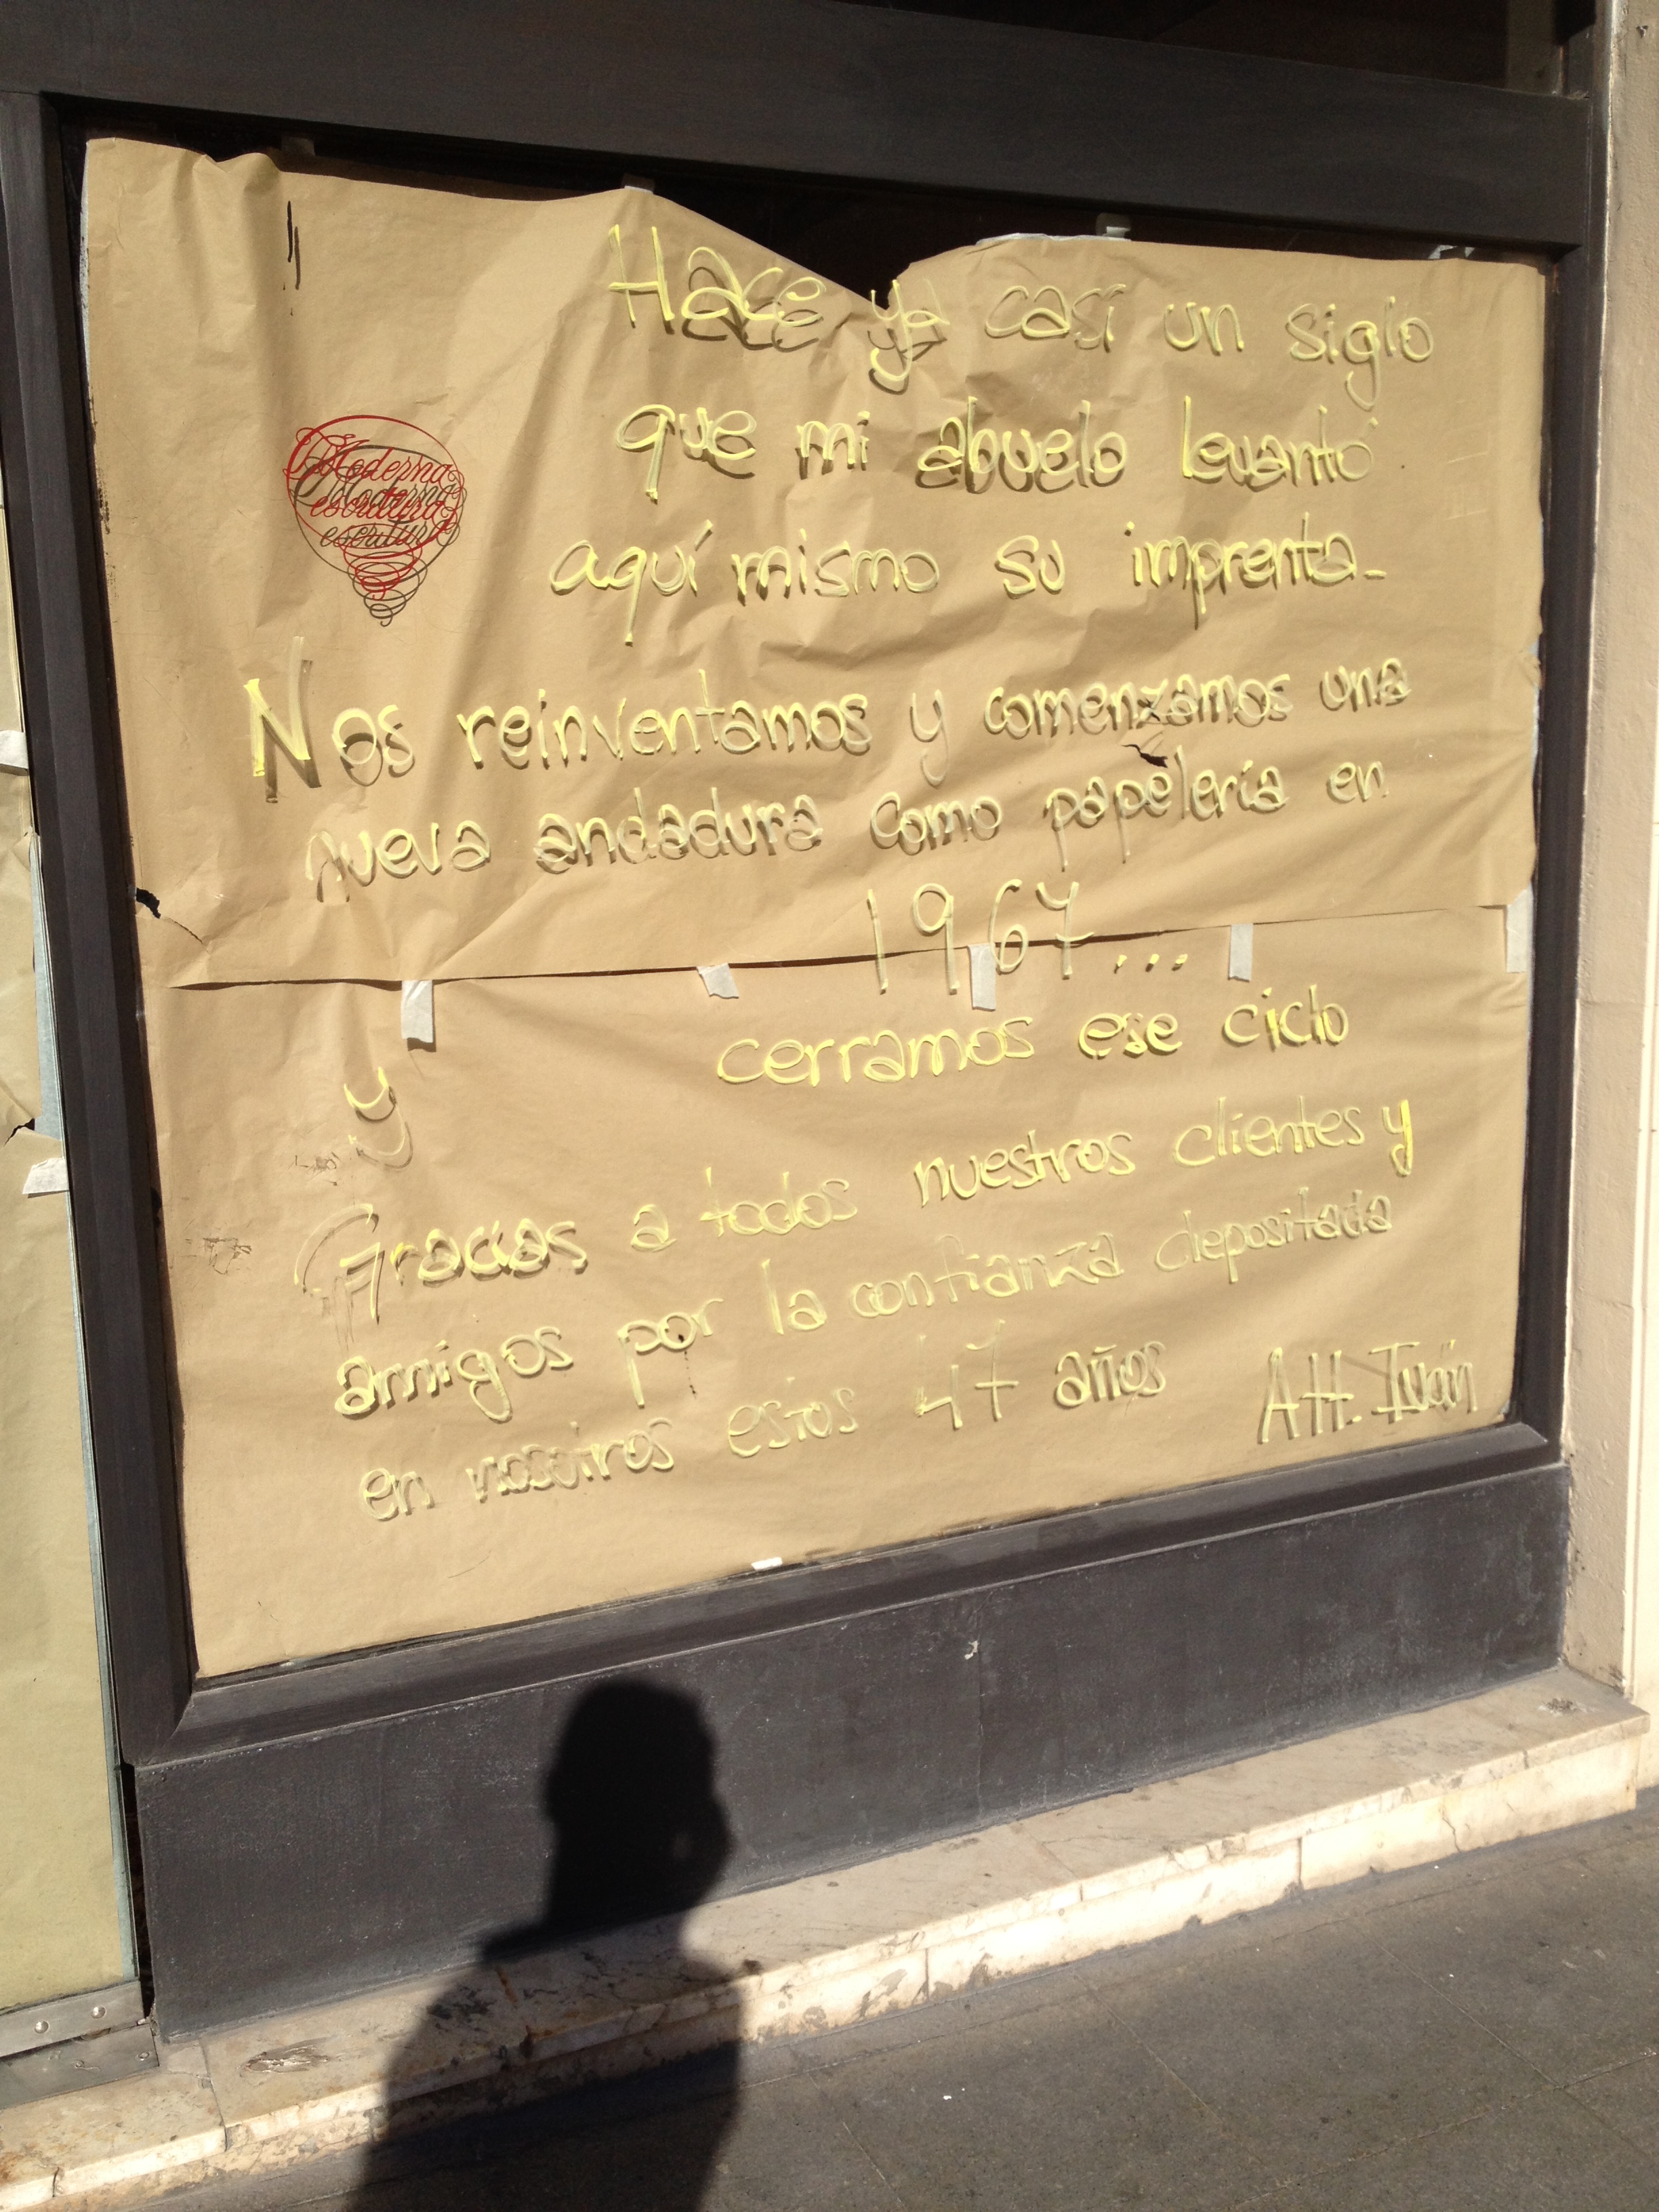 Moderna
escritura
Hace ya casi un siglo
que mi abuelo levantó
aquí mismo su imprenta.
Nos reinventamos y comenzamos una
nueva andadura como papelería en
1967...
y cerramos ese ciclo
Gracias a todos nuestros clientes y
amigos por la confianza depositada
en nosotros estos 47 años
Att. Iván